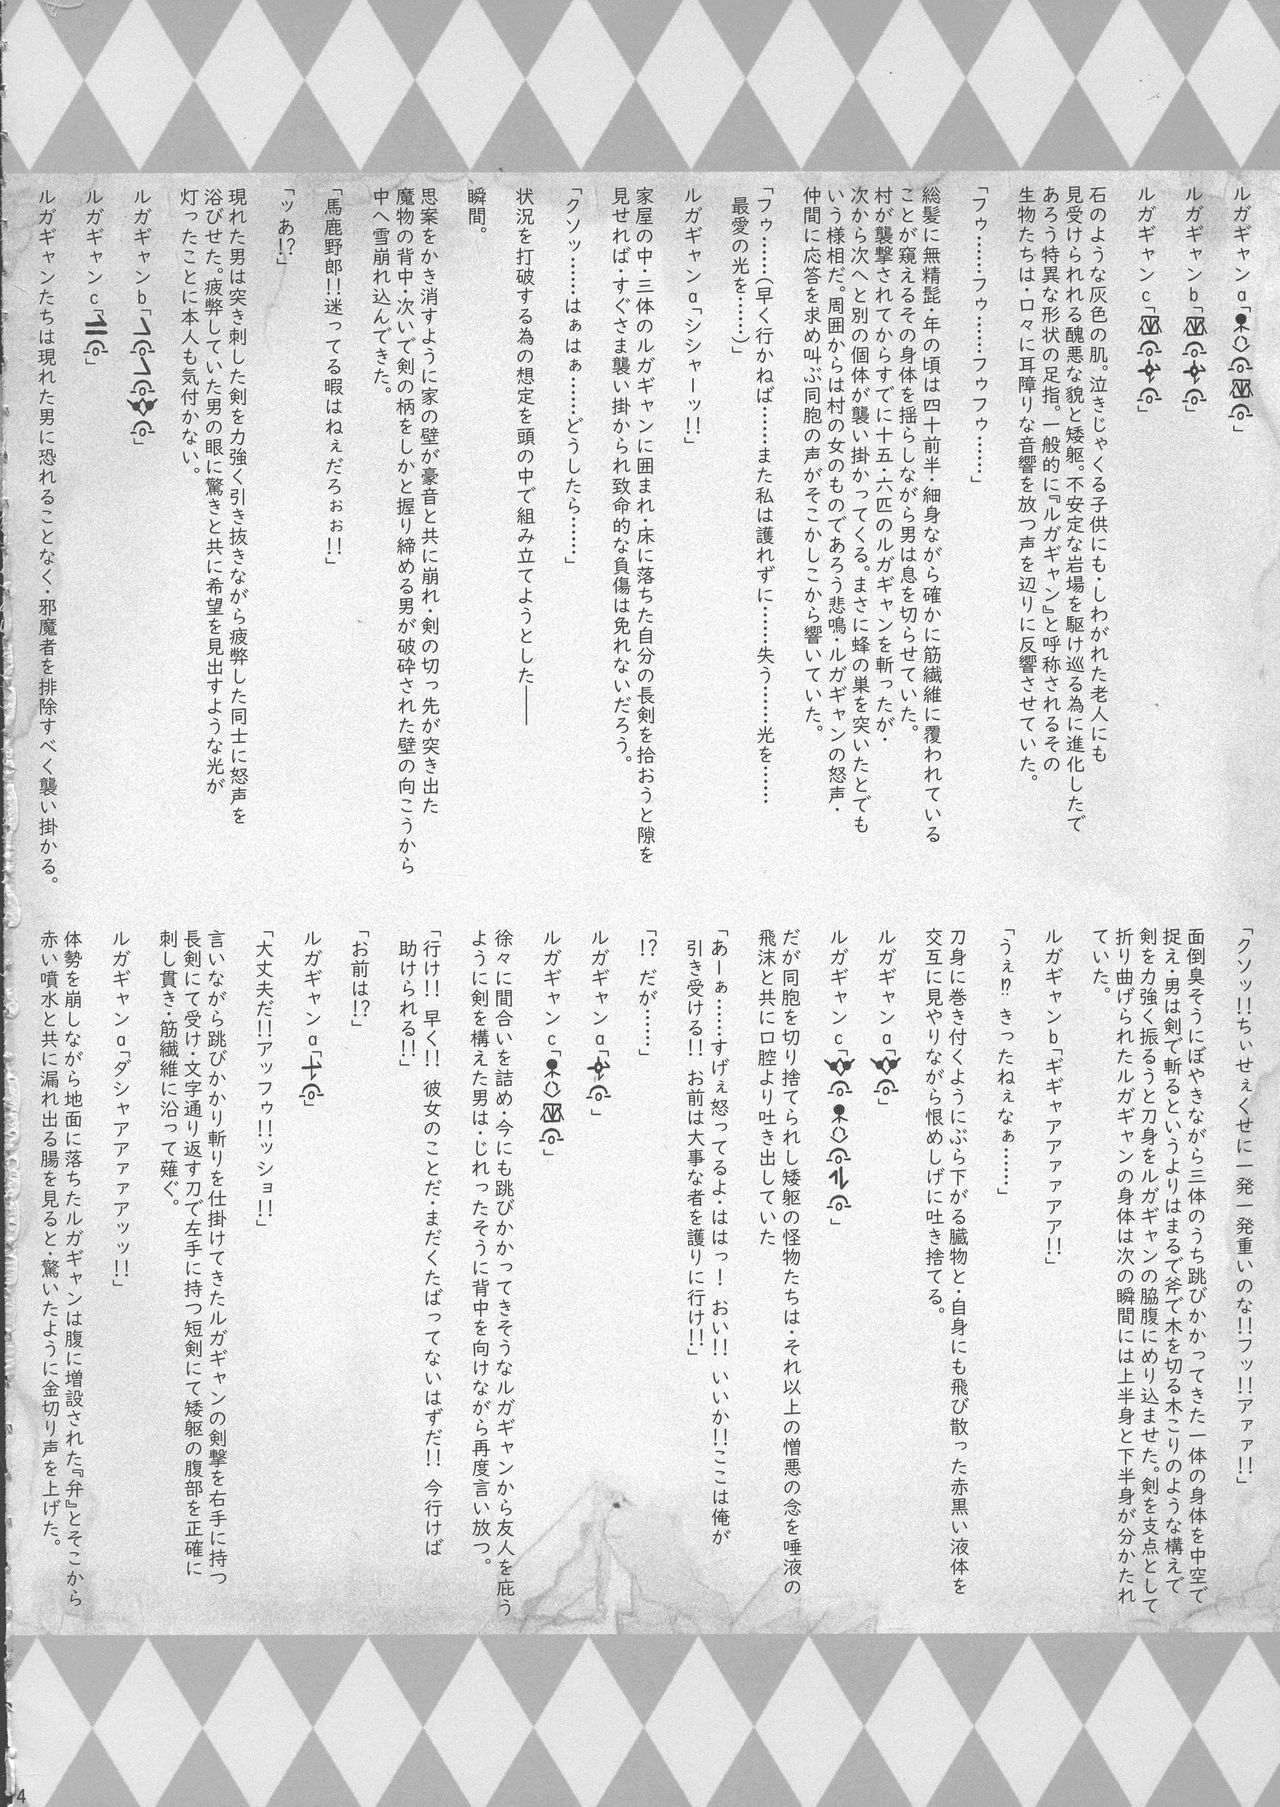 ルガギャンa「
ルガギャンb「
ルガギャンc「
石のような灰色の肌。泣きじゃくる子供にも・しわがれた老人にも
見受けられる醜悪な貌と矮躯。不安定な岩場を駆け巡る為に進化したで
あろう特異な形状の足指。一般的に『ルガギャン』と呼称されるその
生物たちは・口々に耳障りな音響を放つ声を辺りに反響させていた。
「フゥ……フゥ……フゥフゥ……」
総髪に無精髭・年の頃は四十前半・細身ながら確かに筋繊維に覆われている
ことが窺えるその身体を揺らしながら男は息を切らせていた。
村が襲撃されてからすでに十五・六匹のルガギャンを斬ったが・
次から次へと別の個体が襲い掛かってくる。まさに蜂の巣を突いたとでも
いう様相だ。周囲からは村の女のものであろう悲鳴・ルガギャンの怒声・
仲間に応答を求め叫ぶ同胞の声がそこかしこから響いていた。
「フゥ……(早く行かねば……また私は護れずに……失う……光を……
最愛の光を……)」
ルガギャンa「シシャーッ!!」
家屋の中・三体のルガギャンに囲まれ・床に落ちた自分の長剣を拾おうと隙を
見せれば・すぐさま襲い掛かられ致命的な負傷は免れないだろう。
「クソッ……はぁはぁ……どうしたら……」
状況を打破する為の想定を頭の中で組み立てようとした――
瞬間。
思案をかき消すように家の壁が豪音と共に崩れ・剣の切っ先が突き出た
魔物の背中・次いで剣の柄をしかと握り締める男が破砕された壁の向こうから
中へ雪崩れ込んできた。
「馬鹿野郎!!迷ってる暇はねぇだろぉぉ!!」
「ッあ!?」
現れた男は突き刺した剣を力強く引き抜きながら疲弊した同士に怒声を
浴びせた。疲弊していた男の眼に驚きと共に希望を見出すような光が
灯ったことに本人も気付かない。
ルガギャンb「
ルガギャンc「
ルガギャンたちは現れた男に恐れることなく・邪魔者を排除すべく襲い掛かる。
「クソッ!!ちぃせぇくせに一発一発重いのな!!フッ!!アァァ!!」
面倒臭そうにぼやきながら三体のうち跳びかかってきた一体の身体を中空で
捉え・男は剣で斬るというよりはまるで斧で木を切る木こりのような構えで
剣を力強く振るうと刀身をルガギャンの脇腹にめり込ませた。剣を支点として
折り曲げられたルガギャンの身体は次の瞬間には上半身と下半身が分かたれ
ていた。
ルガギャンb「ギギャアアァァアア!!
「うぇ!?きったねぇなぁ……」
刀身に巻き付くようにぶら下がる臓物と・自身にも飛び散った赤黒い液体を
交互に見やりながら恨めしげに吐き捨てる。
ルガギャンa「
ルガギャンc「
だが同胞を切り捨てられし矮躯の怪物たちは・それ以上の憎悪の念を唾液の
飛沫と共に口腔より吐き出していた
「あーぁ……すげぇ怒ってるよ・ははっ! おい!! いいか!!ここは俺が
引き受ける!! お前は大事な者を護りに行け!!」
「!? だが……」
ルガギャンa「
ルガギャンc「
徐々に間合いを詰め・今にも跳びかかってきそうなルガギャンから友人を庇う
ように剣を構えた男は・じれったそうに背中を向けながら再度言い放つ。
「行け!! 早く!! 彼女のことだ・まだくたばってないはずだ!! 今行けば
助けられる!!」
「お前は!?」
ルガギャンa「
「大丈夫だ!!アッフゥ!!ッショ!!」
言いながら跳びかかり斬りを仕掛けてきたルガギャンの剣撃を右手に持つ
長剣にて受け・文字通り返す刀で左手に持つ短剣にて矮躯の腹部を正確に
刺し貫き・筋繊維に沿って薙ぐ。
ルガギャンa「ダシャアアァァアッッ!!」
体勢を崩しながら地面に落ちたルガギャンは腹に増設された『弁』とそこから
赤い噴水と共に漏れ出る腸を見ると・驚いたように金切り声を上げた。
4